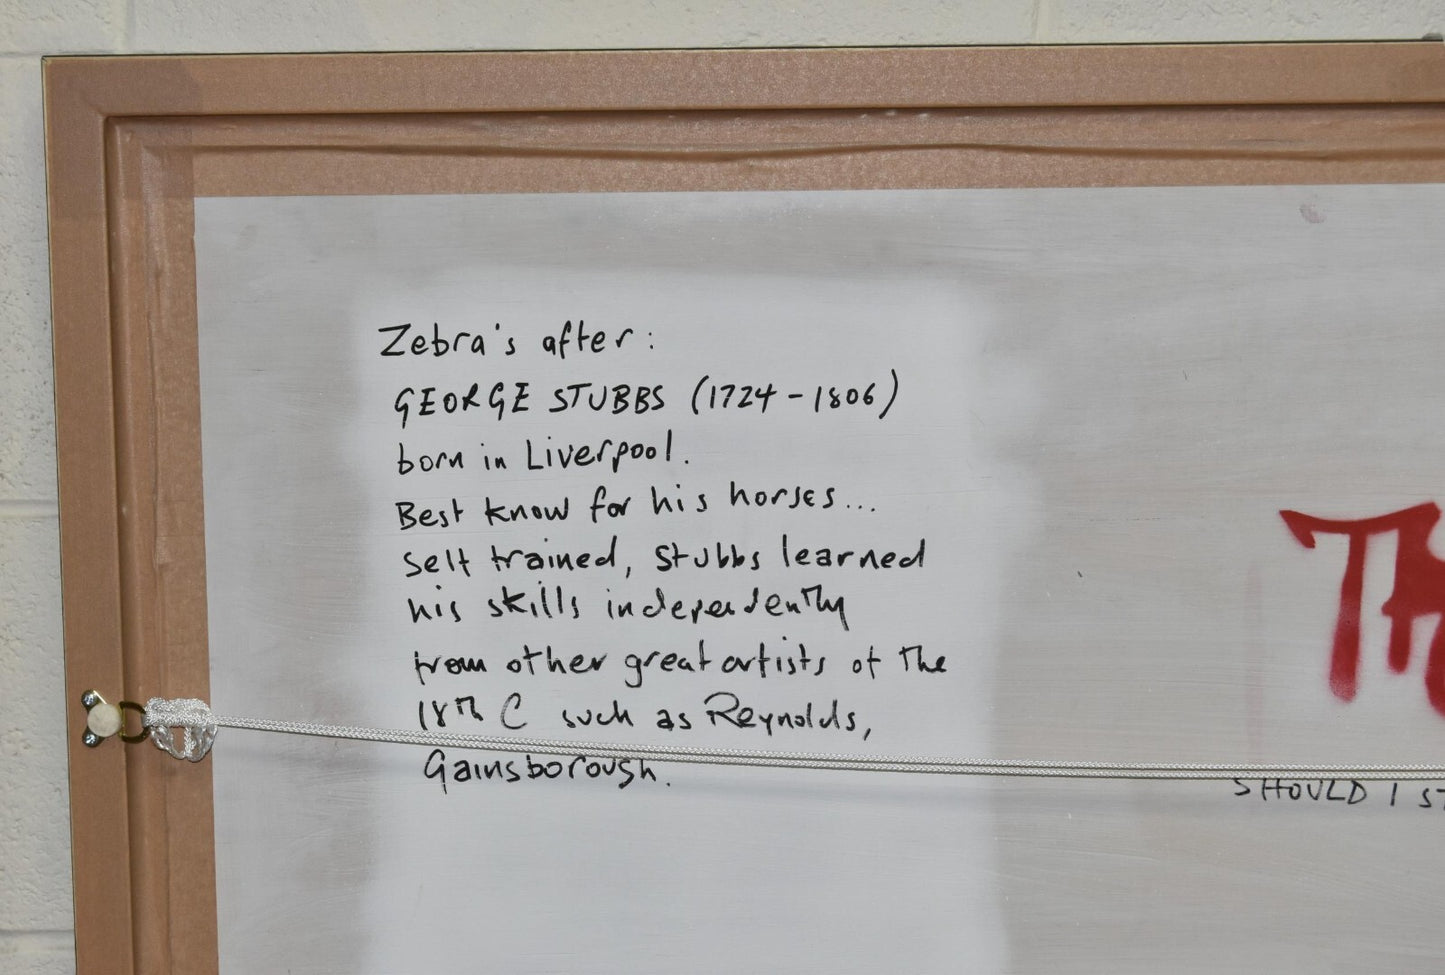 Zebra's after:
GEORGE STUBBS (1724-1806)
born in Liverpool.
Best know for his horses...
self trained, Stubbs learned
his skills independently
from other great artists of the
18th C such as Reynolds,
Gainsborough.
SHOULD I